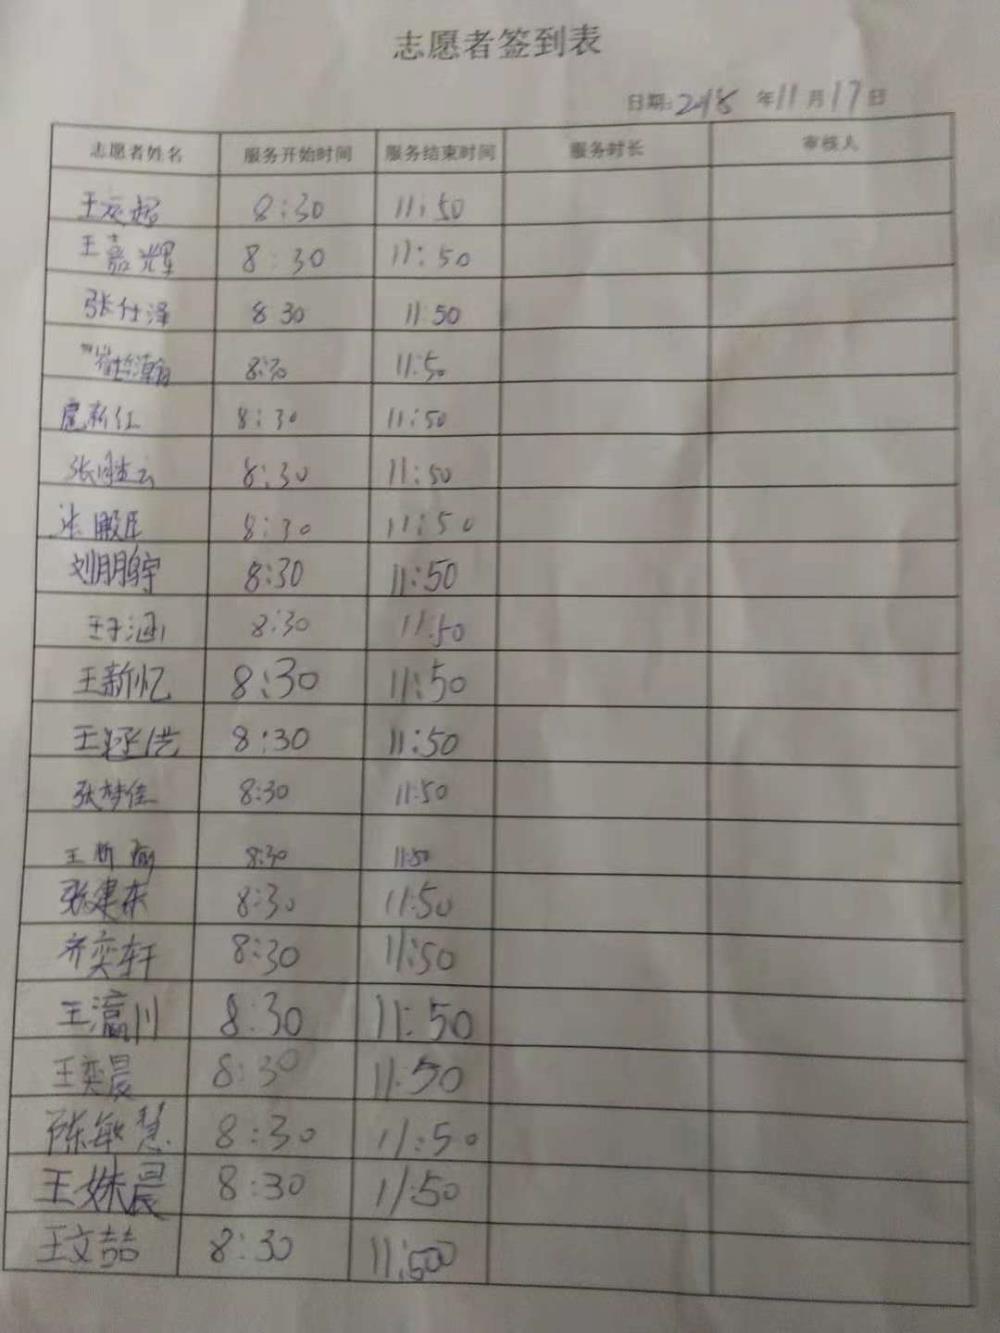 志愿者签到表
日期:2018年11月17日
志愿者姓名 服务开始时间 服务结束时间 服务时长 审核人
8:30 11:50
王嘉辉 8:30 11:50
张仕泽 8 30 11 50
8:30 11:50
8:30 11:50
8:30 11:50
8:30 11:50
刘鹏宇 8:30 11:50
王子涵 8:30 11:50
王新忆 8:30 11:50
8:30 11:50
张梦佳 8:30 11:50
8:30 11:50
张建东 8:30 11:50
齐奕轩 8:30 11:50
王瀛川 8:30 11:50
王奕晨 8:30 11:50
陈敏慧 8:30 11:50
王姝晨 8:30 11:50
王文喆 8:30 11:500